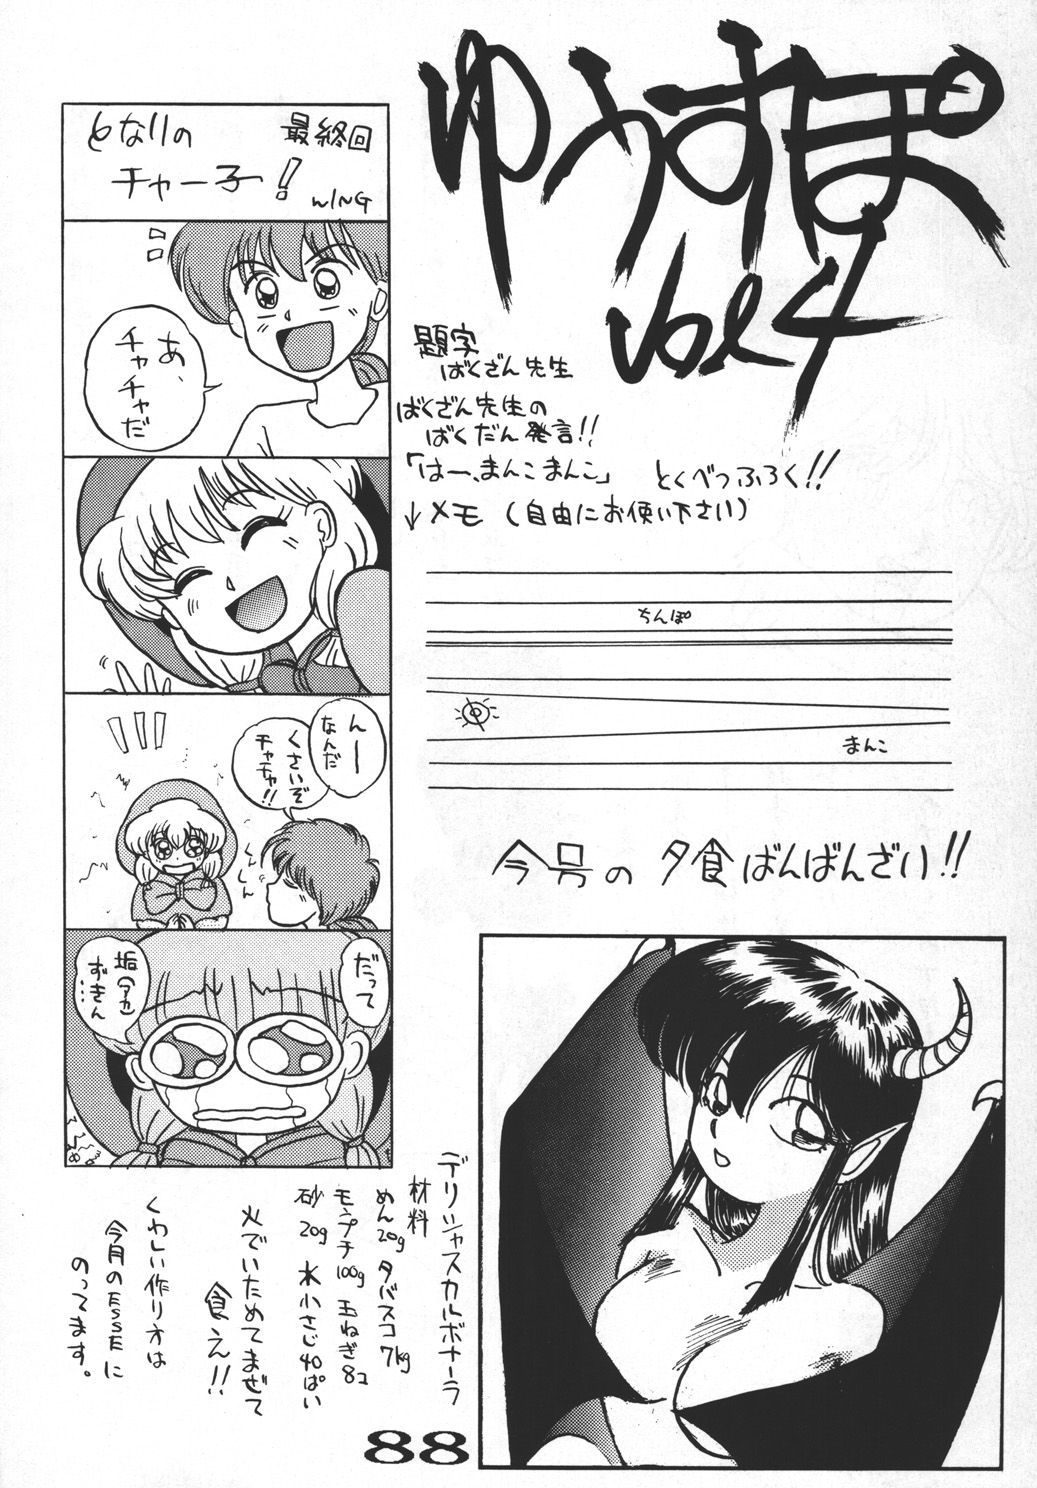 ゆうすぽ
Vol 4
題字
ばくざん先生
ばくざん先生の
ばくだん発言!!
「はー、まんこまんこ」 とくべつふろく!!
↓メモ (自由にお使い下さい)
ちんぽ
まんこ
今号の夕食ばんばんざい!!
最終回
となりの
チャー子!
WING
あ、
チャチャだ
んー
なんだ
くさいぞ
チャチャ!!
くんくん
だって
垢(アカ)
ずきん…
デリシャスカルボナーラ
材料
めん20g タバスコ7kg
モンプチ100g 玉ねぎ8コ
砂20g 水小さじ40ぱい
火でいためてまぜて
食え!!
くわしい作りオは
今月のESSEに
のってます。
88